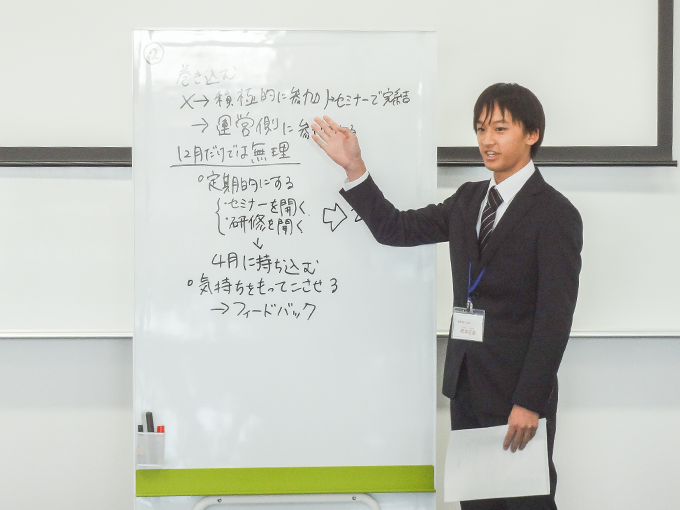 ②
巻き込む
×→積極的に参加→セミナーで完結
→運営側に参
る
12月だけでは無理
○定期的にする
・セミナーを開く
・研修を開く
↓
4月に持ち込む
○気持ちをもってこさせる
→フィードバック